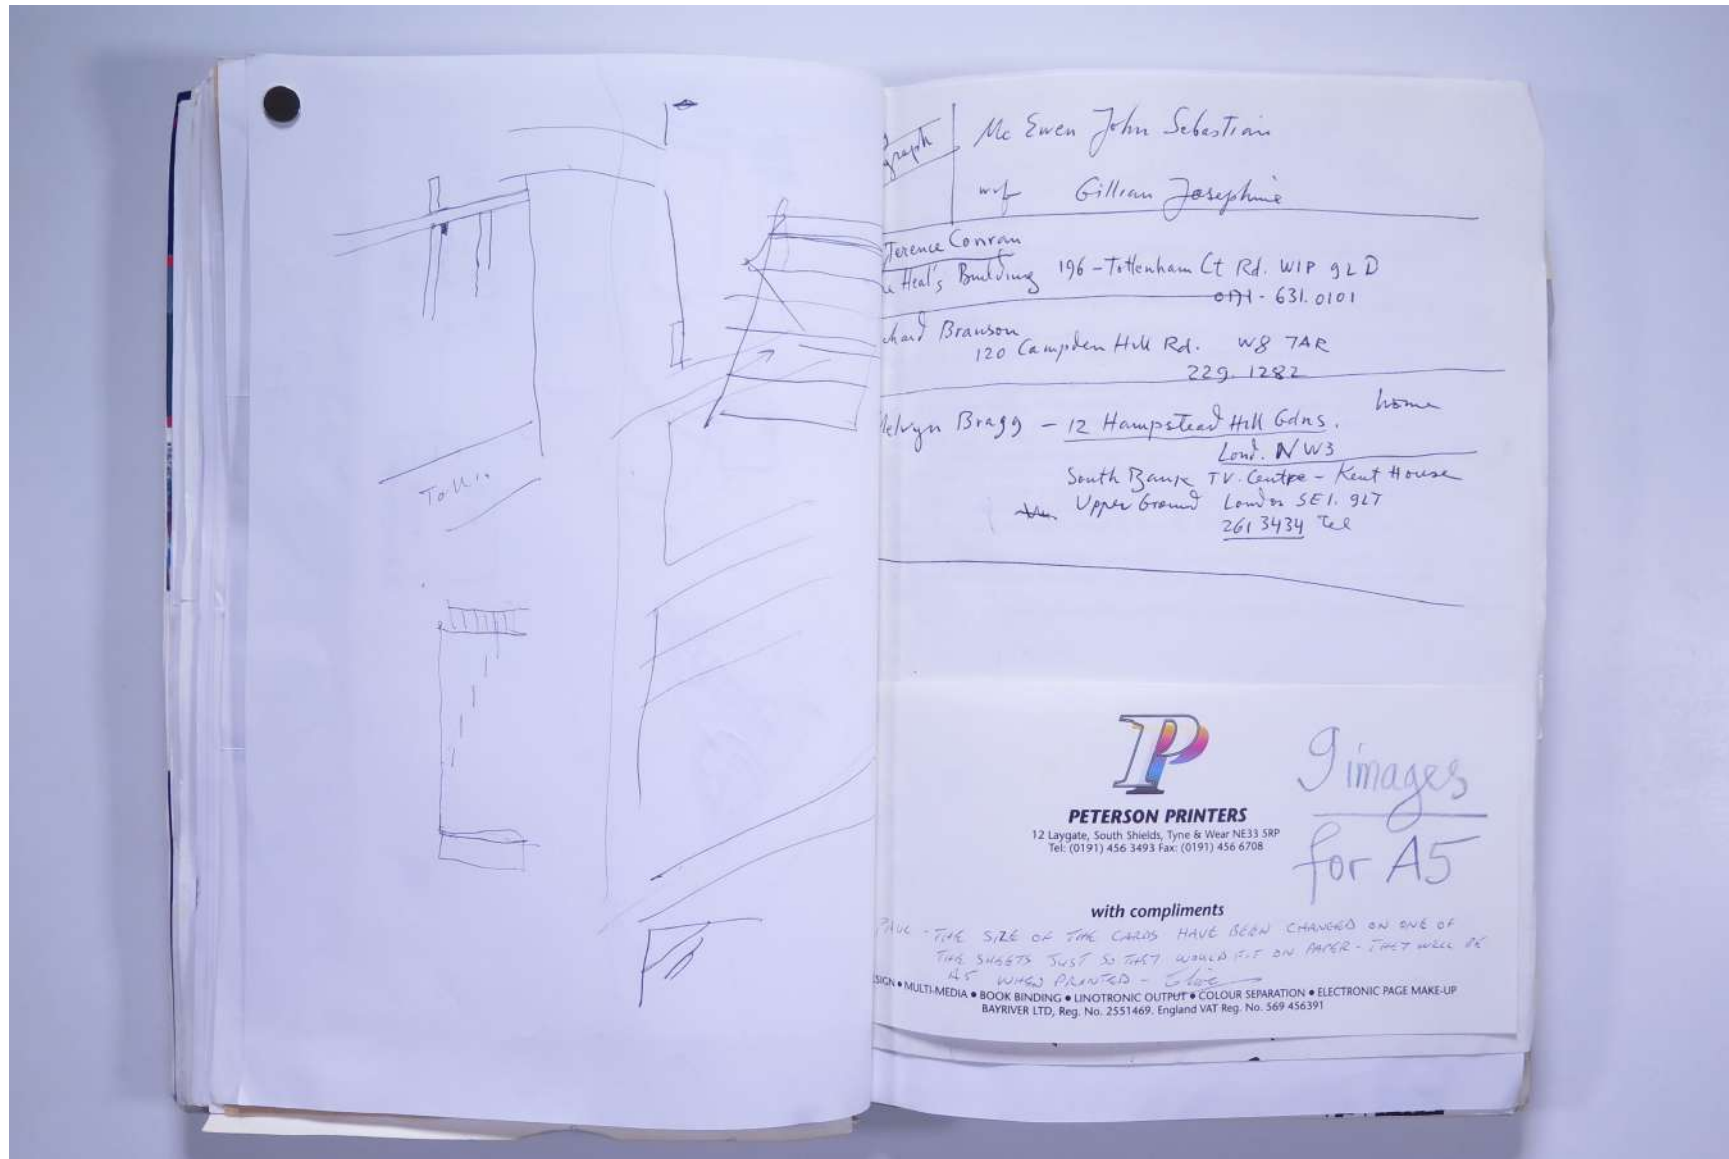 graph
Mc Ewen John Sebastian
wif Gillian Josephine
Terence Conran
Heal's Building 196 - Tottenham Ct Rd. W1P 9LD
0171 - 631.0101
chard Branson
120 Campden Hill Rd. W8 7AR
229. 1282
elvyn Bragg - 12 Hampstead Hill Gdns. home
Lond. NW3
South Bank TV. Centre - Kent House
Upper Ground London SE1. 9LT
261 3434 Tel
P
PETERSON PRINTERS
12 Laygate, South Shields, Tyne & Wear NE33 5RP
Tel: (0191) 456 3493 Fax: (0191) 456 6708
9 images
for A5
with compliments
PAUL - THE SIZE OF THE CARDS HAVE BEEN CHANGED ON ONE OF
THE SHEETS JUST SO THEY WOULD FIT ON PAPER - THEY WILL BE
A5 WHEN PRINTED -
SIGN • MULTI-MEDIA • BOOK BINDING • LINOTRONIC OUTPUT • COLOUR SEPARATION • ELECTRONIC PAGE MAKE-UP
BAYRIVER LTD, Reg. No. 2551469. England VAT Reg. No. 569 456391